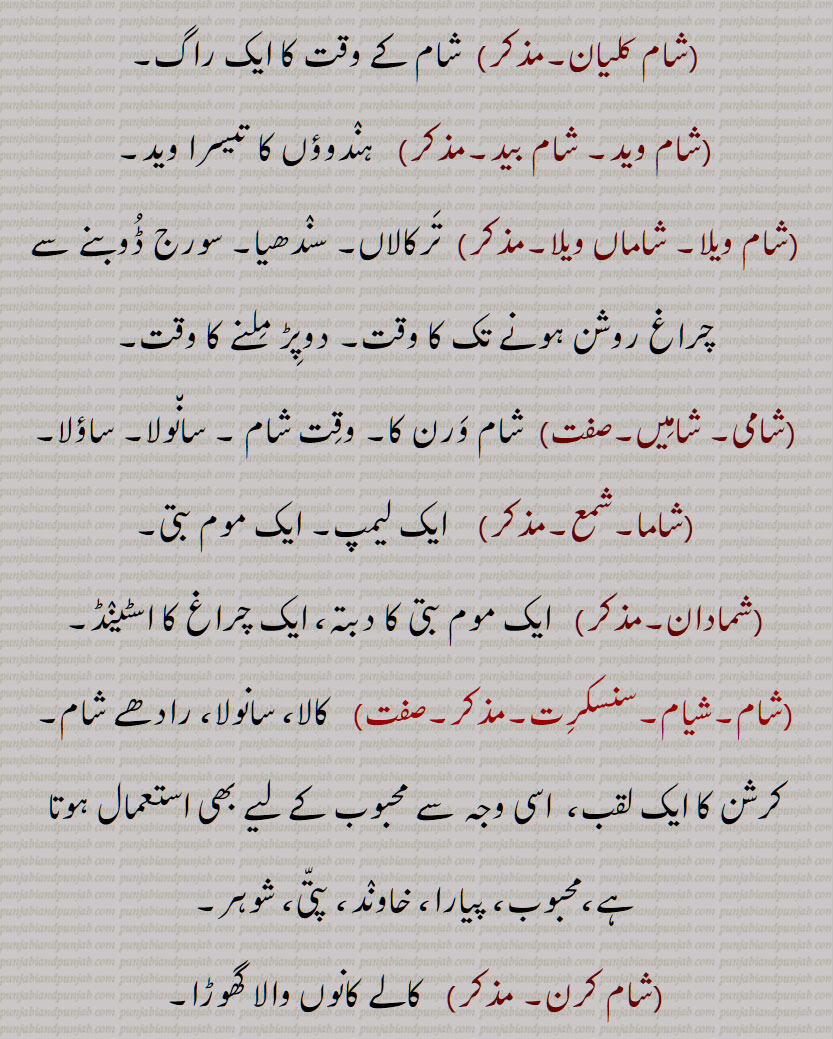 (شام کلیان۔مذکر) شام کے وقت کا ایک راگ۔
(شام وید۔ شام بید۔مذکر) ہنْدوؤں کا تیسرا وید۔
(شام ویلا۔ شاماں ویلا۔مذکر) تَرکالاں۔ سنْدھیا۔ سورج ڈُوبنے سے
چراغ روشن ہونے تک کا وقت۔ دوپِڑ مِلنے کا وقت۔
(شامی۔ شامِیں۔صفت) شام وَرن کا۔ وقِت شام ۔ سانْولا۔ ساؤلا۔
(شاما۔شمع۔مذکر) ایک لیمپ۔ ایک موم بتی۔
(شمادان۔مذکر) ایک موم بتی کا دبتہ، ایک چراغ کا اسٹینْڈ۔
(شام۔شیام۔سنسکرِت۔مذکر۔صفت) کالا، سانولا، رادھے شام۔
کرشن کا ایک لقب، اسی وجہ سے محبوب کے لیے بھی استعمال ہوتا
ہے،محبوب، پیارا، خاونْد، پتّی، شوہر۔
(شام کرن۔ مذکر) کالے کانوں والا گھوڑا۔